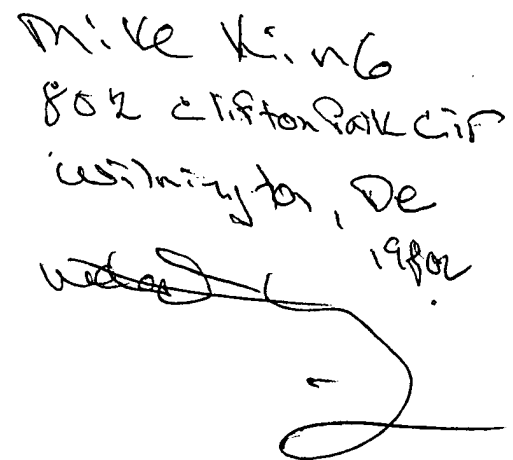 Mike King
802 Clifton Park Cir
Wilmington, De
19802